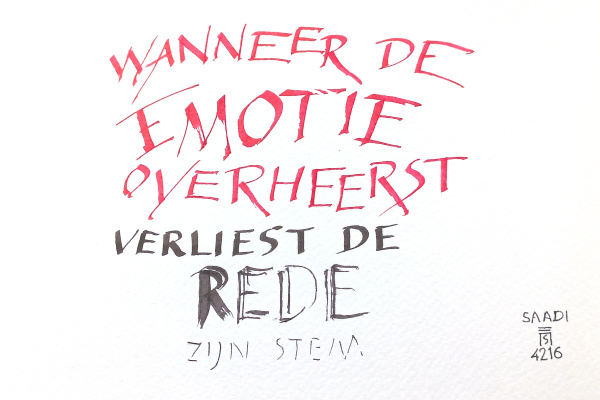 WANNEER DE
EMOTIE
OVERHEERST
VERLIEST DE
REDE
ZIJN STEM
SAADI
4216